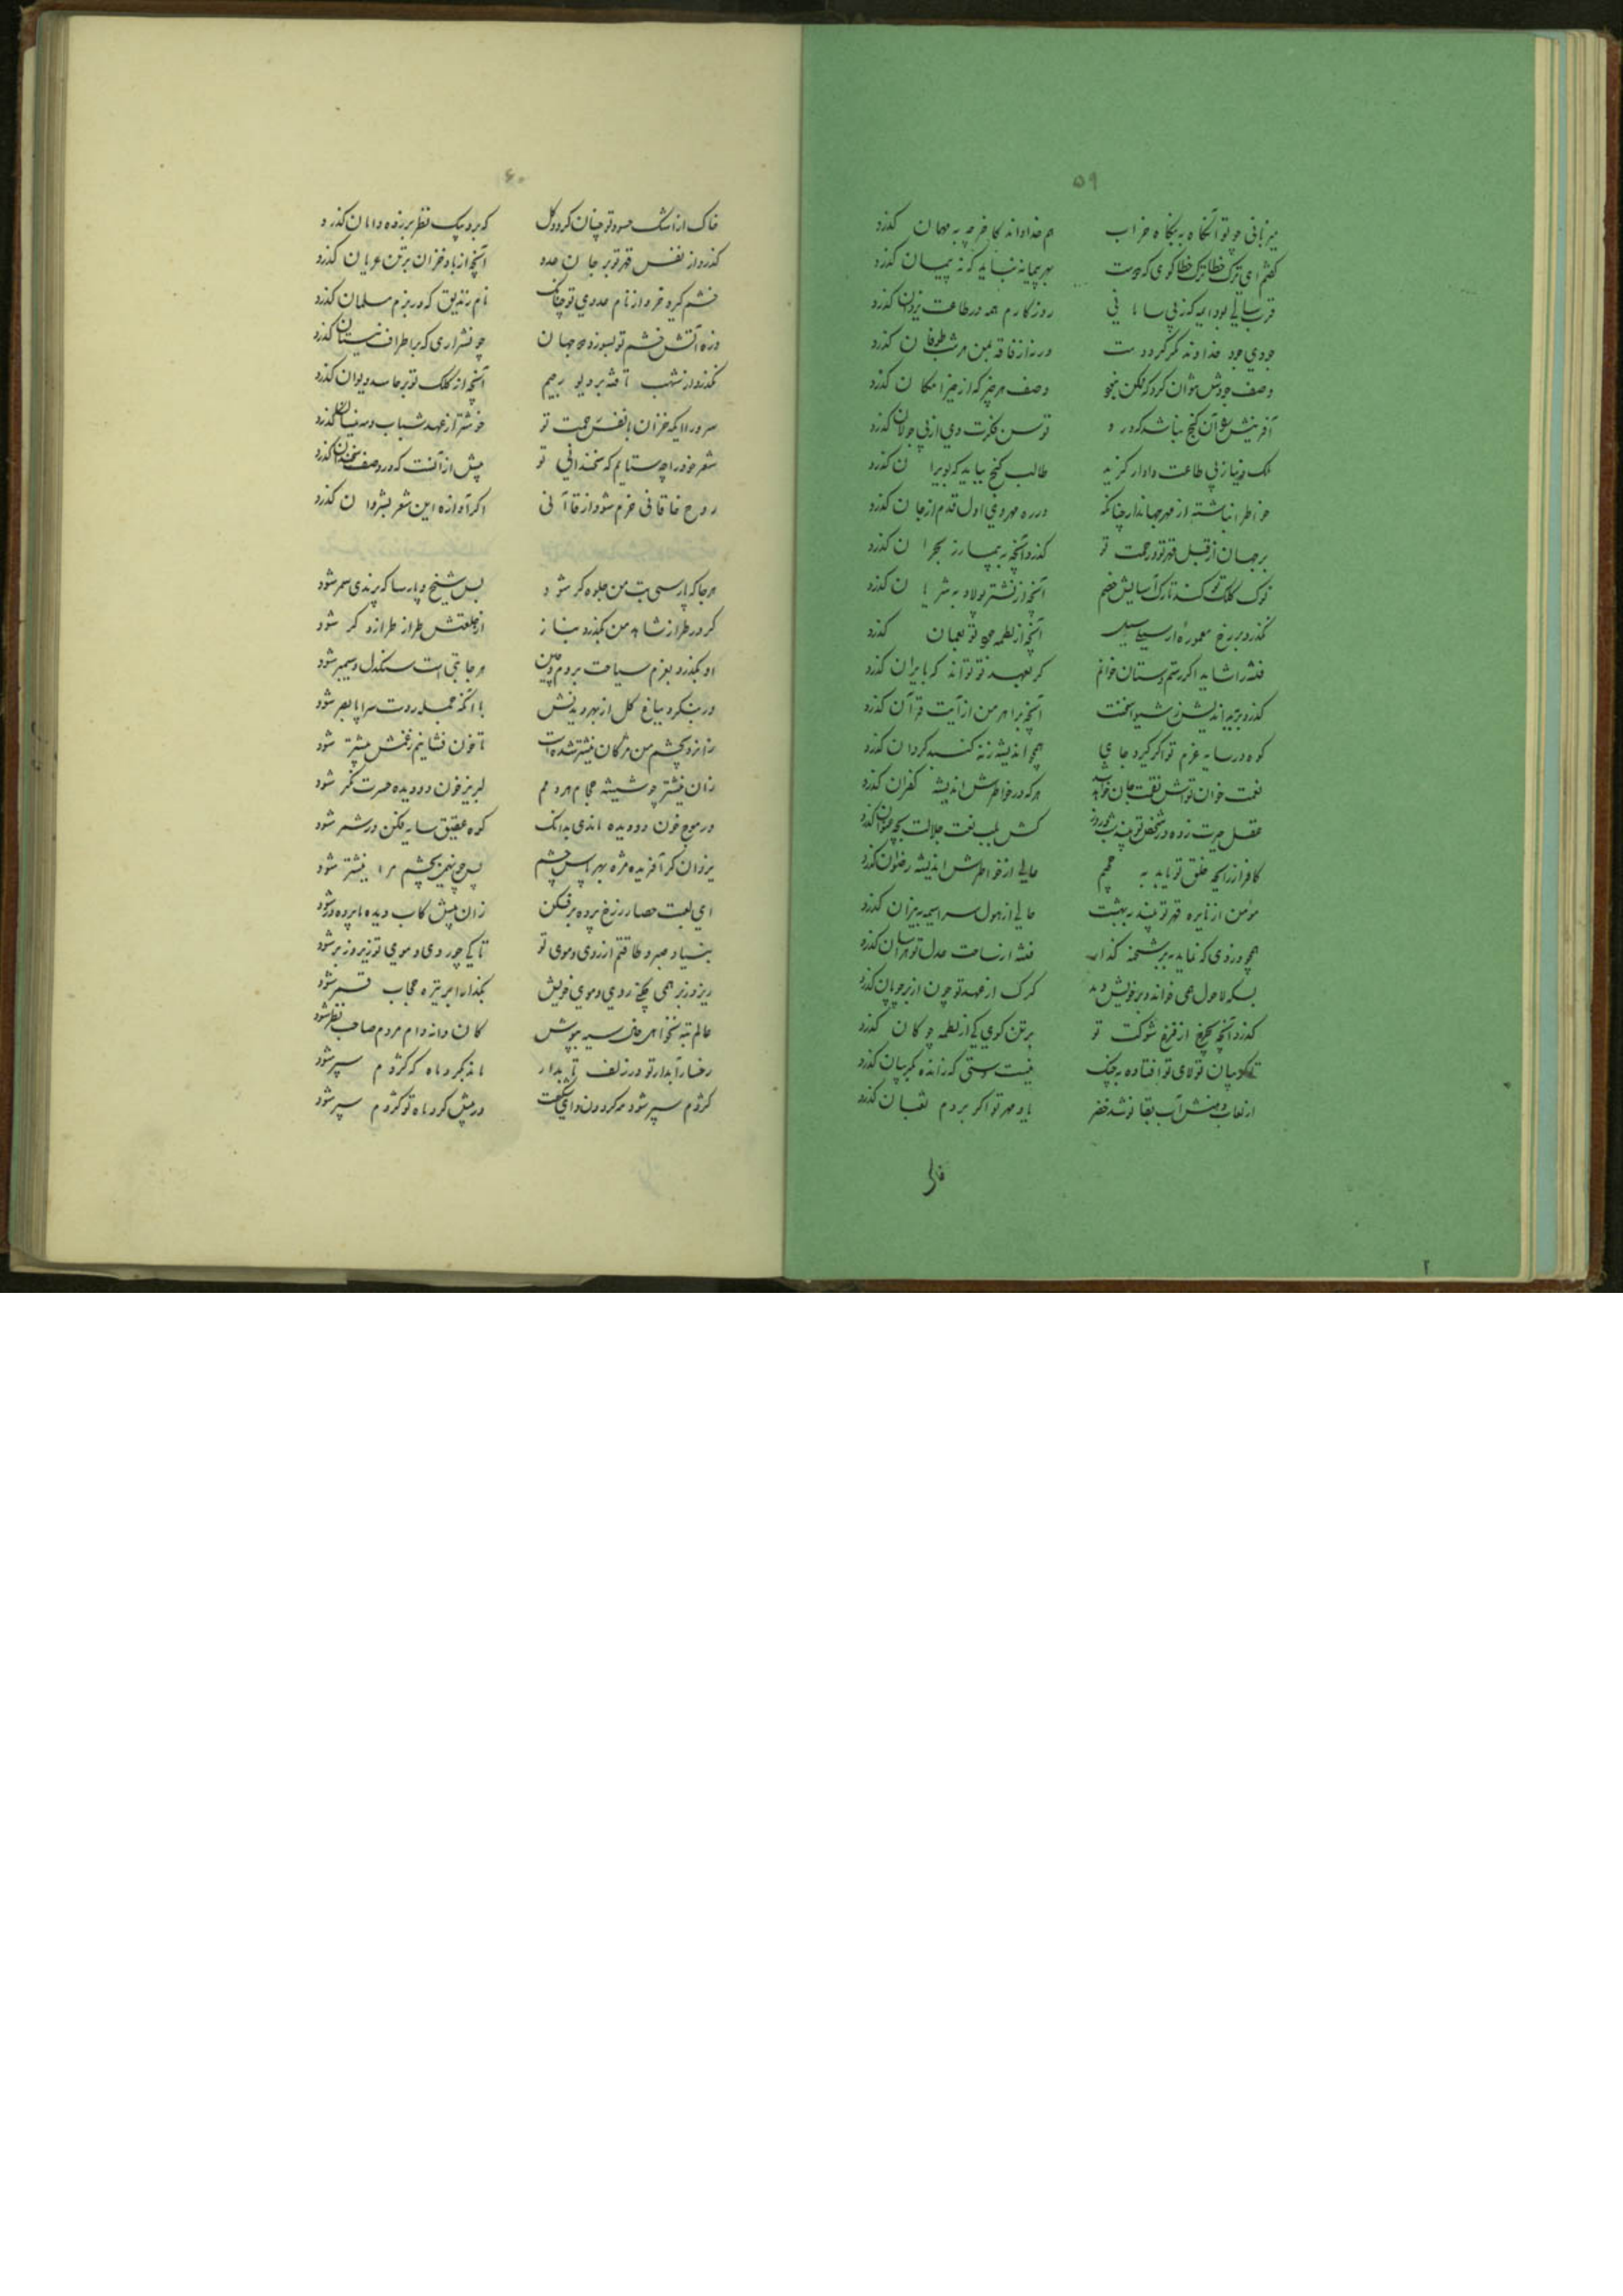 ۵۹
میزبانی چو تو آنگاه به بنگاه خراب هم خدا داند کاخر چه به مهمان گذرد
گفتم ای ترک خطا ترک خطا گوی که بهر پیمانه نباید که ز پیمان گذرد
قرب سالی بود ایمه که ز بی سامانی روزگارم همه در طاعت یزدان گذرد
جودی جود خداوند مگر گردد ورنه از فاقه بمن مرشب طوفان گذرد
وصف جودش نتوان کرد که ممکن نبود وصف هر چیز که از حیز امکان گذرد
آفرینش توسن فکرت وی از پی جولان گذرد
ملک دنیا ز پی طاعت دادار گزید طالب گنج بباید که بویران گذرد
خاطر انباشته از مهر جهاندار چنانکه در ره مهر وی اول قدم از جان گذرد
بر جهان از قبل قهر تو و رحمت تو گذرد آنچه به بیمار ز بحران گذرد
نوک کلک تو کند تارک آسایش خصم آنچه از نشتر پولاد به شریان گذرد
نگذرد بر رخ معموره از سیلی سیل آنچه از لطمه گذرد
فتنه را شاید اگر رستم دستان خوانم گر بعهد تو تواند که بایران گذرد
گذرد بر بداندیش ز شمشیر آنچه بر اهرمن از آیت قرآن گذرد
کوه در سایه عزم تو اگر گیرد جای همچو اندیشه زنه گنبد گردان گذرد
نعمت خوان هرکه در خاطرش اندیشه کفران گذرد
عقل حیرت زده در شخص تو بیند
کافر ار رایحه خلق تو یابد به جحیم حالی از خاطرش اندیشه رضوان گذرد
مؤمن از نایره قهر تو بیند به بهشت حالی از هول سراسیمه به نیران گذرد
همچو دزدی که نماید بر شحنه گذار فتنه از ساحت عدل تو هراسان گذرد
بسکه لاحول همی خواند و بر خویش دمد گرگ از عهد تو چون از بر چوپان گذرد
گذرد آنچه بچرخ از فزع شوکت تو بر تن گوی کی از لطمه چوگان گذرد
نیست سستی که زاننده گریبان گذرد
از لعاب دهنش آب بقا نوشد خضر یاد مهر تو اگر بر دم ثعبان گذرد
خاک
۶۰
خاک از اشک حسود تو چنان گردد گل که برد پیک نظر بر زده دامان گذرد
گذرد از نفس قهر تو بر جان عدو آنچه از باد خزان بر تن عریان گذرد
خشم گیرد خرد از نام عدوی تو چنانک نام زندیق که در بزم مسلمان گذرد
ذره آتش خشم تو بسوزد دو جهان چو شراری که بر اطراف نیستان گذرد
نگذرد از شهب تافته بر دیو رجیم آنچه از کلک تو بر حاسد دیوان گذرد
سرورا ایکه خزان با نفس رحمت تو خوشتر از عهد شباب و مه نیسان گذرد
شعر خود را چه ستایم که سخندانی تو پیش از آنست که در وصف سخندان گذرد
روح خاقانی خرم شود از قاآنی اگر آوازه این شعر بشروان گذرد
هرجا که پارسی بت من جلوه گر شود بس شیخ و پارسا که برندی سمر شود
گر در طراز شاهد من بگذرد بناز از طلعتش طراز طرازد گر شود
او بگذرد بعزم سیاحت بروم و چین هرجا بتی است سنگدل و سیمبر شود
ور بنگرد بباغ گل از بهر دیدنش با آنکه جمله روست سراپا بصر شود
زانرو بچشم من مژگان نیشتر شده است تا خون فشانیم ز غمش بیشتر شود
زان نیشتر چو شیشه حجام هر دمم لبریز خون دو دیده حسرت نگر شود
در موج خون دو دیده ماندی بدانک کوه عقیق سایه فکن در شمر شود
یزدان گر آفریده مژه بهر پاس چشم پس چون همی بچشم مرا نیشتر شود
ای لعبت حصار ز رخ پرده برفکن زان پیش کاب دیده ما پرده در شود
بنیاد صبر و طاقتم از روی و موی تو تا کی چو روی و موی تو زیر و زبر شود
زیر و زبر همی چکنی روی و موی خویش بگذار ابر تیره حجاب قمر شود
عالم تبه نخواهی خال سیه بپوش کان دانه دام مردم صاحب نظر شود
رخسار آبدار تو در زلف تابدار ماند بگرد ماه که کژدم سپر شود
کژدم سپر شود مه گردون و ای شگفت در پیش گرد ماه تو کژدم سپر شود
۲